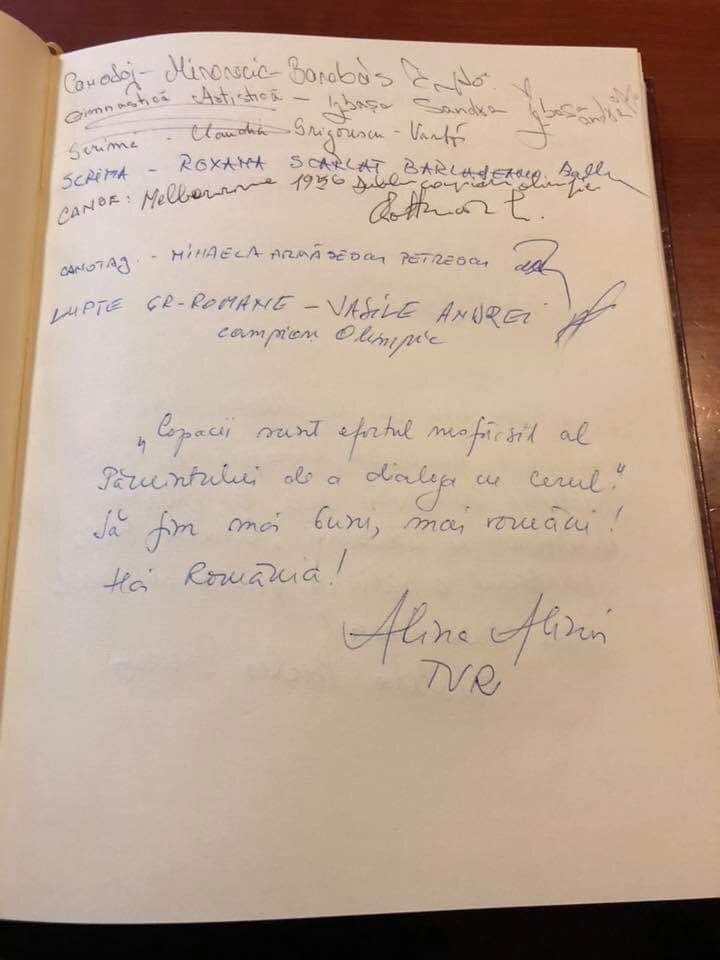 Canotaj - Mironcic - Barabás Enikő
Gimnastică Artistică - Izbașa Sandra Izbașa Sandra
Scrimă - Claudia Grigorescu - Vanță
SCRIMA - ROXANA SCARLAT BARLADEANU
CANOE: Melbourne 1956 Dublu campion olimpic
Rottman L.
CANOTAJ - MIHAELA ARMĂȘESCU PETRESCU
LUPTE GR-ROMANE - VASILE ANDREI
campion Olimpic
"Copacii sunt efortul nesfârșit al
Pământului de a dialoga cu cerul."
Să fim mai buni, mai români!
Hai România!
Alina Alexoi
TVR